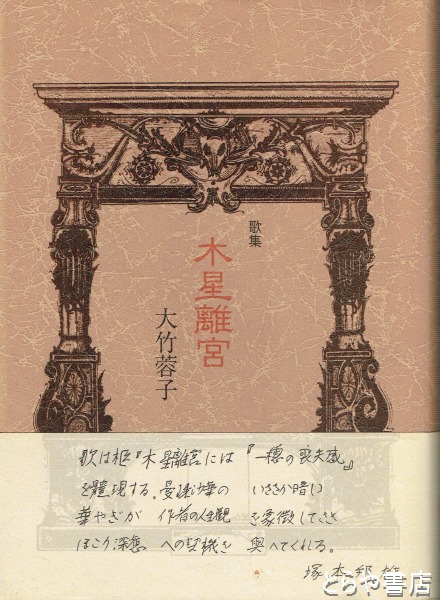 歌集
木星離宮
大竹蓉子
歌は柩『木星離宮には『一穂の喪失感』
を體現する。の いささか暗い
華やぎが 作者の人生観 を象徴してさ
ほこり深想 への契機を 與へてくれる。
塚本邦雄
とらや書店